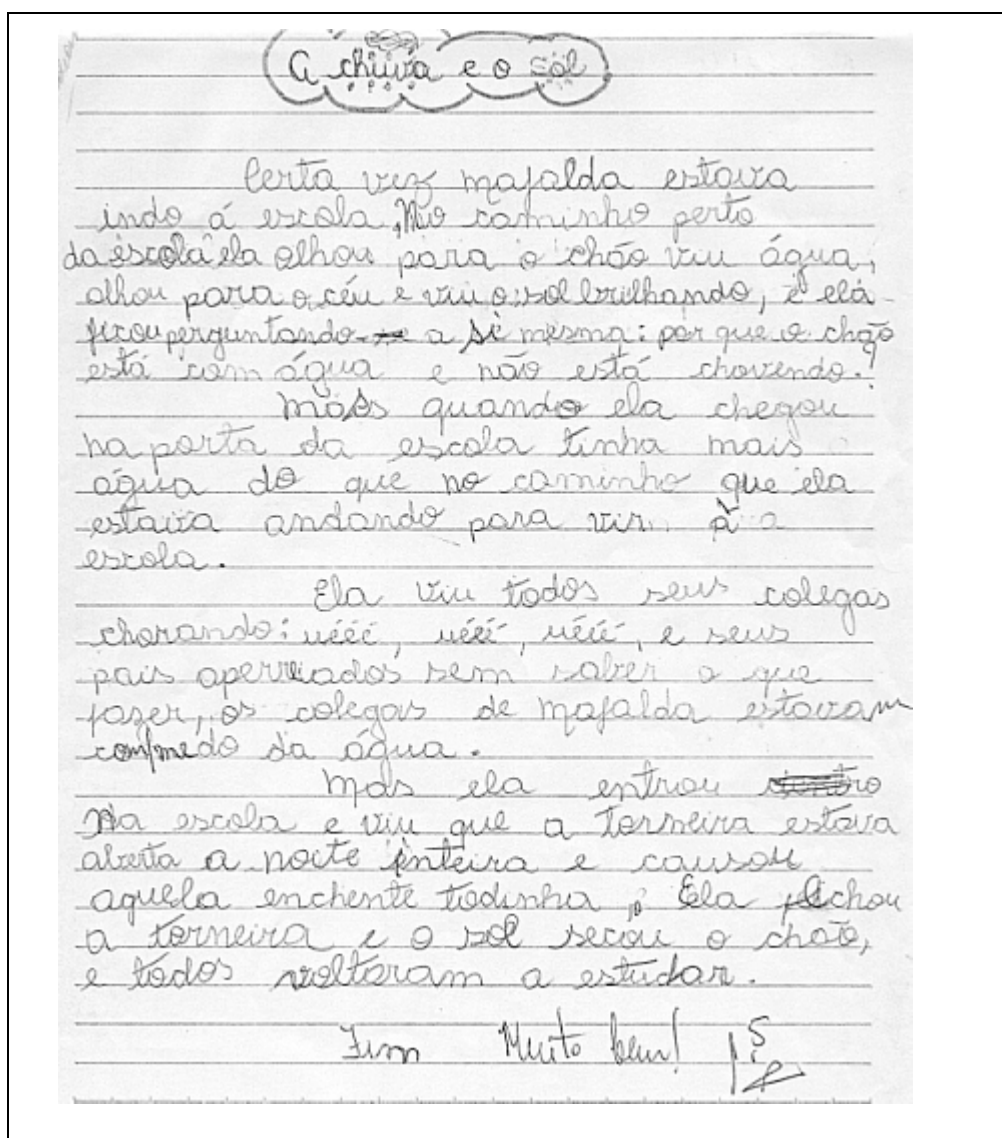 A chuva e o sol
Certa vez mafalda estava
indo á escola, No caminho perto
da escola ela olhou para o chão viu água,
olhou para o céu e viu o sol brilhando, e ela
ficou perguntando a si mesma: por que o chão
está com água e não está chovendo?
Mas quando ela chegou
na porta da escola tinha mais
água do que no caminho que ela
estava andando para vir à a
escola.
Ela viu todos seus colegas
chorando: uééé, uééé, uééé, e seus
pais aperreados sem saber o que
fazer, os colegas de mafalda estavam
com medo da água.
Mas ela entrou
Na escola e viu que a torneira estava
aberta a noite inteira e causou
aquela enchente todinha, Ela fechou
a torneira e o sol secou o chão,
e todos voltaram a estudar.
Fim Muito bem!